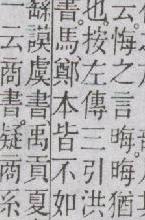 云悔之言晦晦猶
也按左傳三引洪
書馬鄭本皆不如
謨虞書禹貢夏
一云商書疑商系